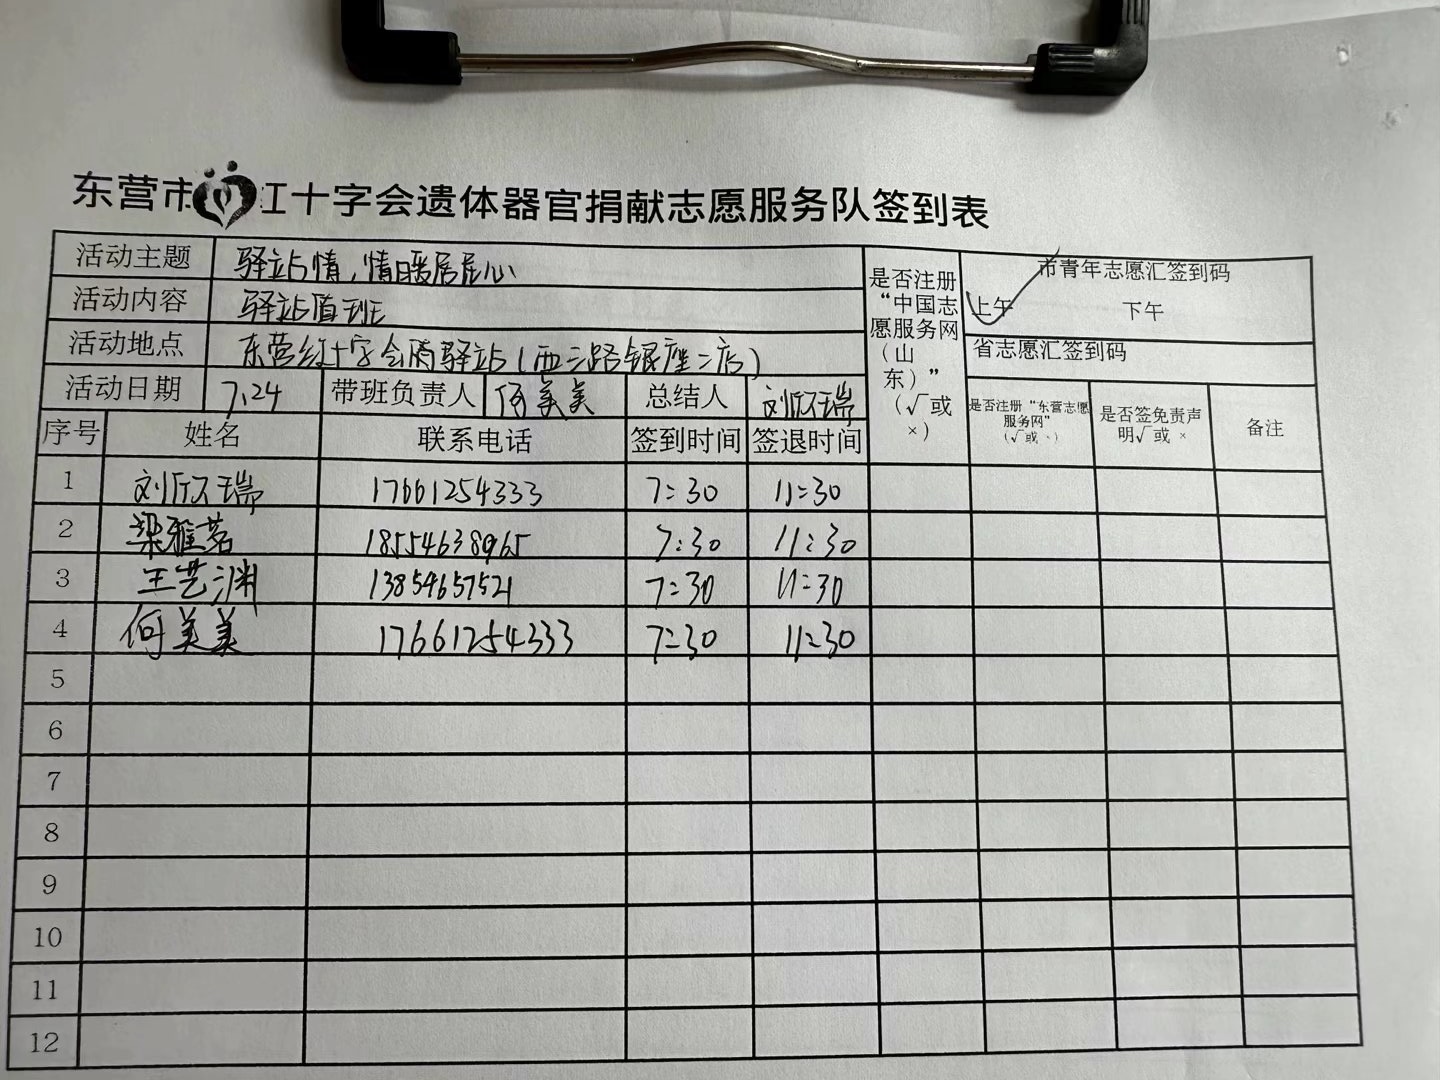 东营市红十字会遗体器官捐献志愿服务队签到表
活动主题 驿站情,情暖居居心
活动内容 驿站值班
活动地点 东营红十字会雨驿站(西三路银座二店)
活动日期 7.24 带班负责人 何美美 总结人 刘欣瑞
是否注册“中国志愿服务网(山东)”(√或×)
市青年志愿汇签到码
上午 下午
省志愿汇签到码
序号 姓名 联系电话 签到时间 签退时间 是否注册“东营志愿服务网”(√或、) 是否签免责声明√或× 备注
1 刘欣瑞 17661254333 7:30 11:30
2 梁雅茗 18554638965 7:30 11:30
3 王艺渊 13854657521 7:30 11:30
4 何美美 17661254333 7:30 11:30
5
6
7
8
9
10
11
12